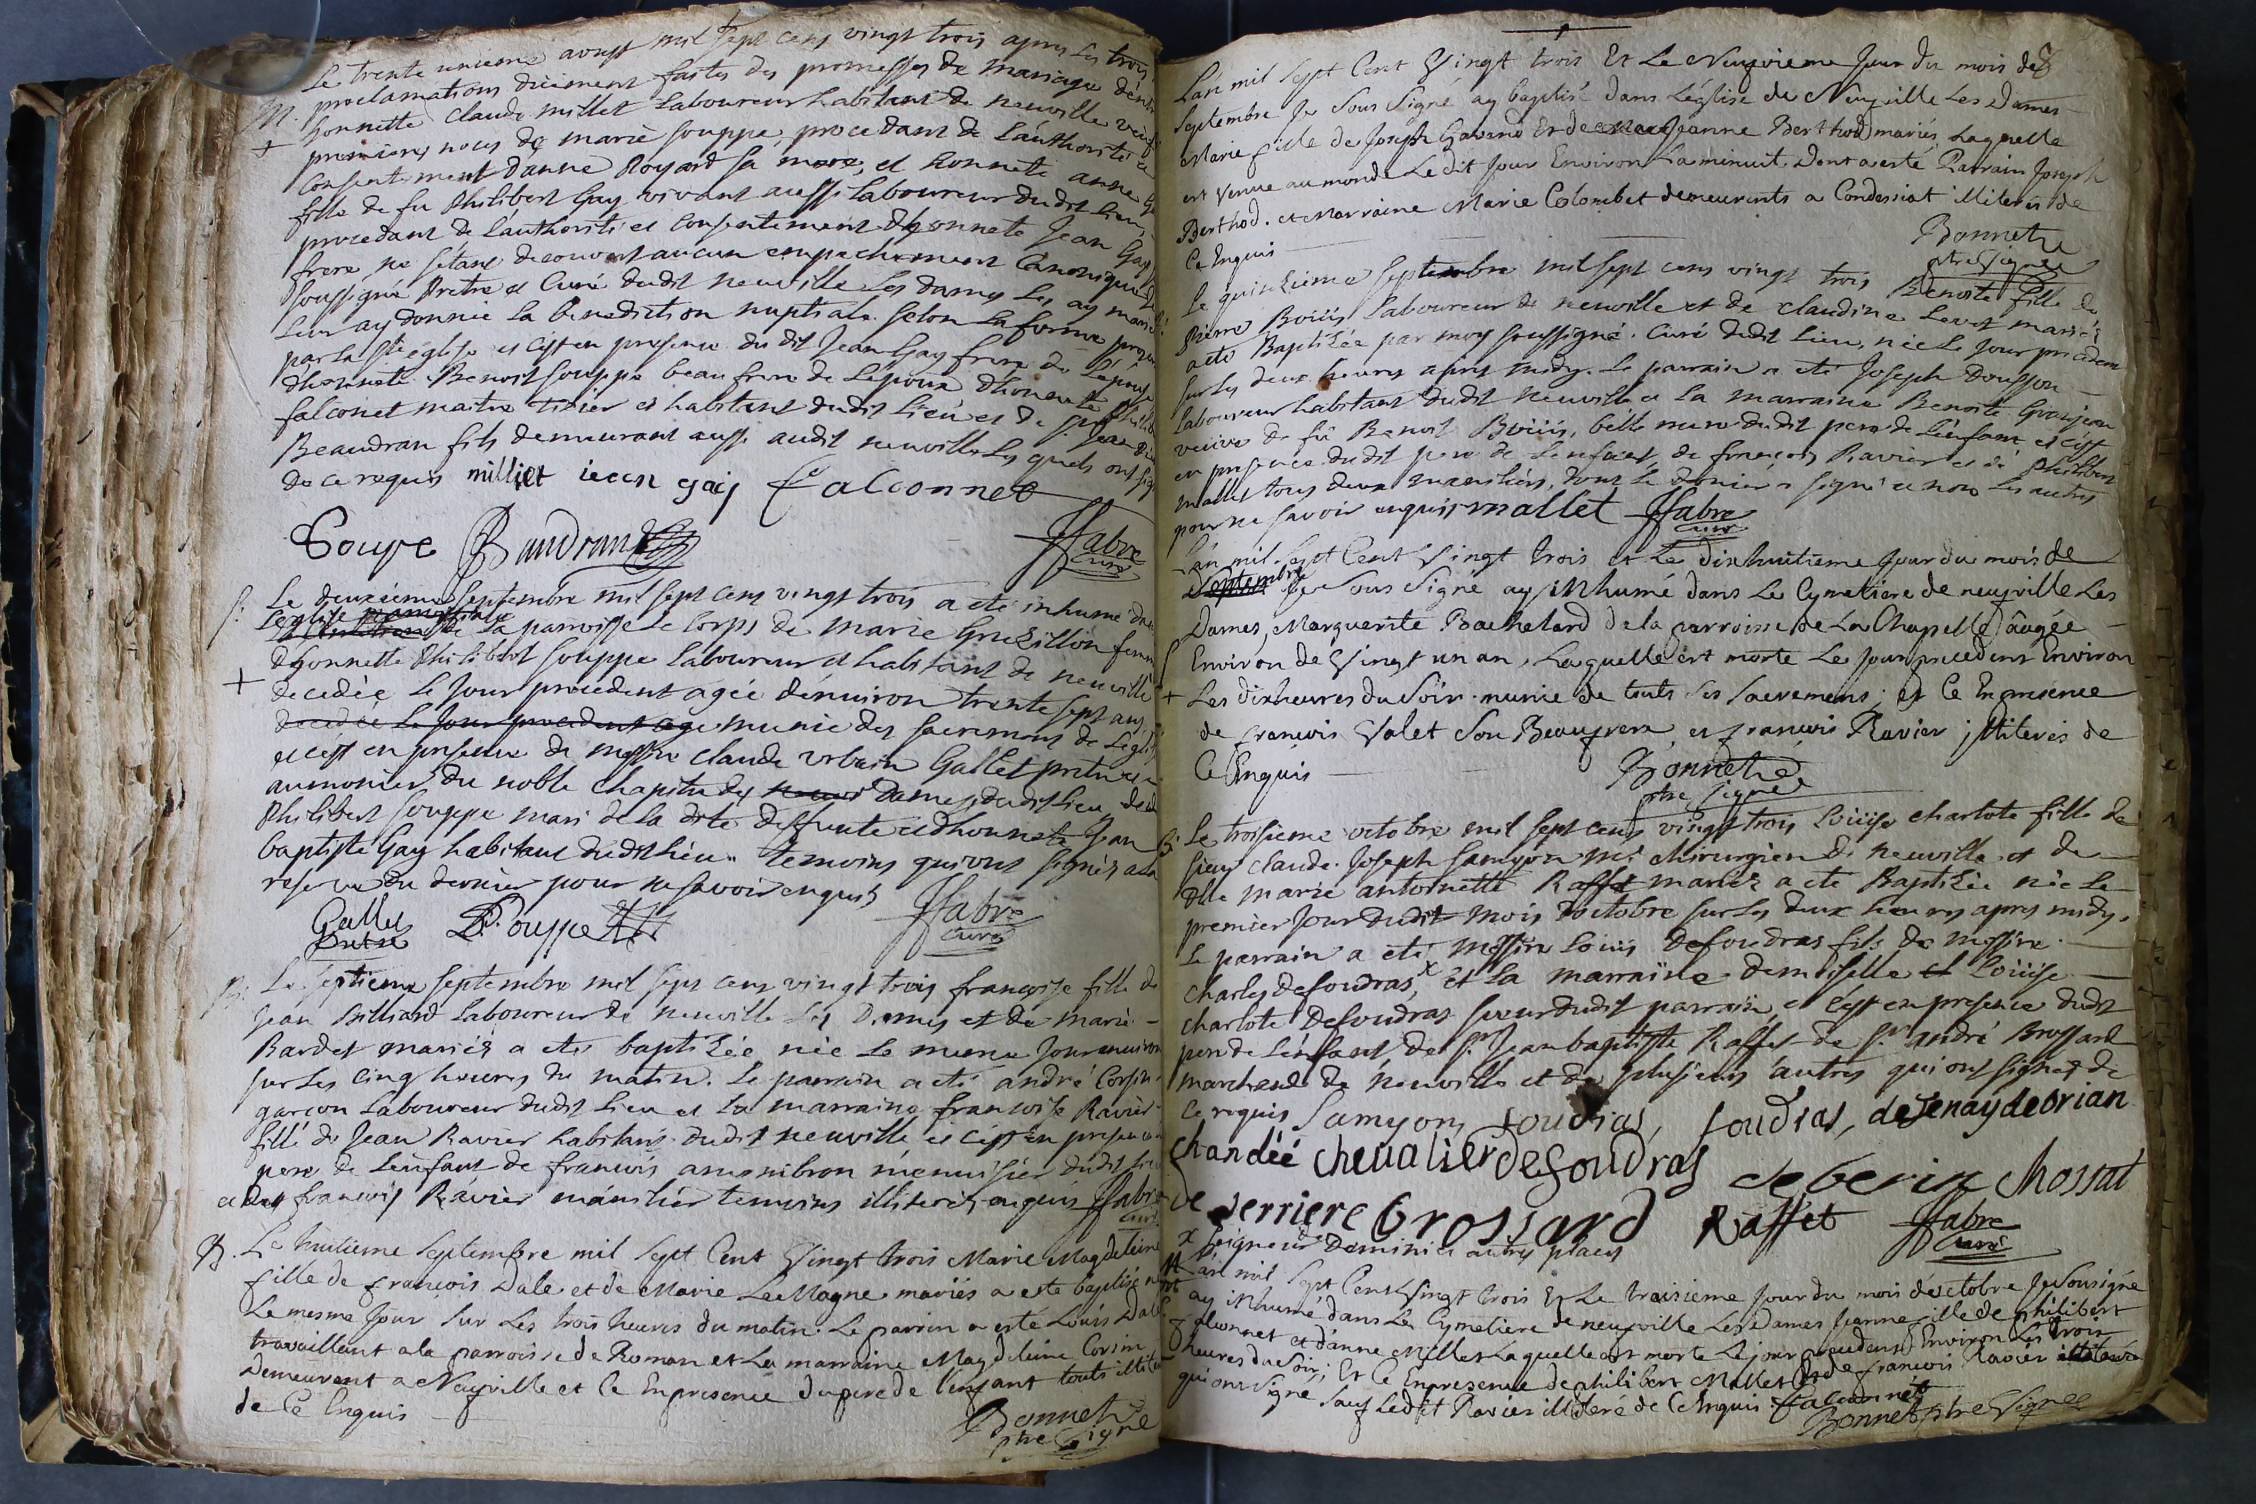 Le trente unieme aoust mil sept cens vingt trois apres les trois
M. proclamations düement faites des promesses de mariage d'entre
honnette Claude millet Laboureur habitant de neuville veuf
premieres noces de marie souppe, procedant de l'authorité
+ consentement danne Royard sa mere, et honnete anne
fille de fu Philibert Gay vivant aussi Laboureur dudit Lieu
procedant de l'authorité et consentement dhonnete Jean Gay
frere ne setant decouvert aucun empechement Canonique
soussigné Pretre et Curé dudit neuville Les dames Les ay mariés
Leur ay donnée La benediction nuptiale selon La forme
par La ste eglise et c'est en presence du dit Jean Gay frere de L'épouse
dhonnete Benoist souppe beau frere de L'époux dhonnete
falconet maitre Tixier et habitant dudit Lieu et de sr Jean
Beaudran fils demeurant aussi audit neuville Les quels ont
de ce requis milliet iean gay falconnet
Soupe Baudrand JFabre
curé
S. Le deuxième septembre mil sept cens vingt trois a été inhumé dans
L'eglise
de La parroisse Le corps de marie Grezillon femme
dhonnette Philibert souppe Laboureur et habitant de neuville
+ decedée Le Jour precedent agée dénviron trente sept ans
decedée Le Jour precedent age munie des sacremens de L'eglise
et c'est en presence de messire claude urbain Gallet pretre
aumonier du noble Chapitre des Dames dudit lieu
Philibert souppe mari de la dite deffunte et dhonnete Jean
baptiste Gay habitant dudit lieu temoins qui ont signés a la
reserve du dernier pour ne savoir enquis
Gallet PSouppe JFabre
pretre curé
B. Le septieme septembre mil sept cens vingt trois francoise fille de
Jean Billiard Laboureur de neuville Les Dames et de marie
Bardet mariés a eté baptizée née Le meme Jour environ
sur Les cinq heures du matin. Le parrain a eté andré Corsin
garçon Laboureur dudit Lieu et La marraine francoise Ravier
fille de Jean Ravier habitant dudit neuville et c'est en presence
pere de L'enfant de francois menuisier dudit lieu
et de francois Ravier manilier temoins illiterés enquis JFabre
curé
B. Le huitieme septembre mil sept Cent Vingt trois Marie Magdeleine
fille de francois Dale et de Marie Le Magne mariés a esté baptisé
Le mesme Jour sur Les trois heures du matin. Le parrin a esté Loüis Dale
travaillant a la parroisse de Roman et La marraine Magdeleine Corsin
Demeurent a Neufville et ce En presence du pere de l'enfant touts
de Ce Enquis
Bonnet
ptre Signé
L'an mil sept Cent Vingt trois Et Le Neufvieme Jour du mois de
septembre Je sous signé ay baptisé dans l'eglise de Neufville Les Dames
Marie fille de Joseph Gavand Et de Jeanne Berthod mariés, Laquelle
est venue au monde Le dit Jour Environ La minuit. Dont a esté Parrain Joseph
Berthod. et Marraine Marie Colombet demeurents a Condessiat illiterés de
Ce Enquis
Bonnet
ptre Signé
Le quinzieme septembre mil sept cens vingt trois Benoite fille de
Pierre Boüis Laboureur de neuville et de claudine Levet mariés
a eté Baptizée par moy soussigné Curé dudit Lieu, née Le Jour precedent
sur Les deux heures apres midy. Le parrain a eté Joseph Dousson
Laboureur habitant dudit neuville et La marraine Benoite Grosjean
veuve de fû Benoit Boüis, belle mere dudit pere de L'enfant et c'est
en presence dudit pere de L'enfant, de francois Ravier et de Philibert
mallet tous deux maniliers, dont Le dernier a signé et non Les autres
pour ne savoir enquis mallet JFabre
curé
L'an mil sept Cent Vingt trois et Le dixhuitieme Jour du mois de
septembre Je sous signé ay inhumé dans Le Cymetiere de neufville Les
Dames, Marguerite Bachelard de la parroisse de La Chapelle, âagée
Environ de Vingt un an, Laquelle est morte Le jour precedent Environ
+ Les dix heures du soir munie de touts ses sacremens; et Ce En presence
de francois Valet son Beaufrere et francois Ravier illiterés de
Ce Enquis
Bonnet
ptre Signé
B. Le troisieme octobre mil sept cens vingt trois Loüise charlote fille de
sieur claude Joseph Samyon me chirurgien de neuville et de
dlle marie antoinette Raffet mariés a eté Baptizée née Le
premier Jour dudit mois d'octobre sur Les deux heures apres midy.
Le parrain a eté messire Loüis Defoudras fils de messire
charles defoudras, x et La marraine demoiselle Loüise
charlote Defoudras soeur dudit parrain, et c'est en presence dudit
pere de L'enfant, de sr Jean baptiste Raffet de sr andré Brossard
marchand de neuville et de plusieurs autres qui ont signez de
ce requis Samyon, foudras, foudras, de Jenay de orian
chandéé chevalier de foudras de berin Chossat
de derriere Brossard Raffet JFabre
curé
x seigneur Deminié et autres places
L'an mil sept Cent Vingt trois Et Le troisieme jour du mois d'octobre Je sousigné
ay inhumé dans Le Cymetiere de neufville Les Dames Jeanne fille de philibert
falconnet et d'anne Millet Laquelle est morte Le jour precedent Environ Les trois
heures du soir; Et Ce En presence de philibert Mallet Et de francois Ravier
qui ont signé sauf Ledit Ravier illiteré de Ce Enquis. falconnet
Bonnet ptre Signé